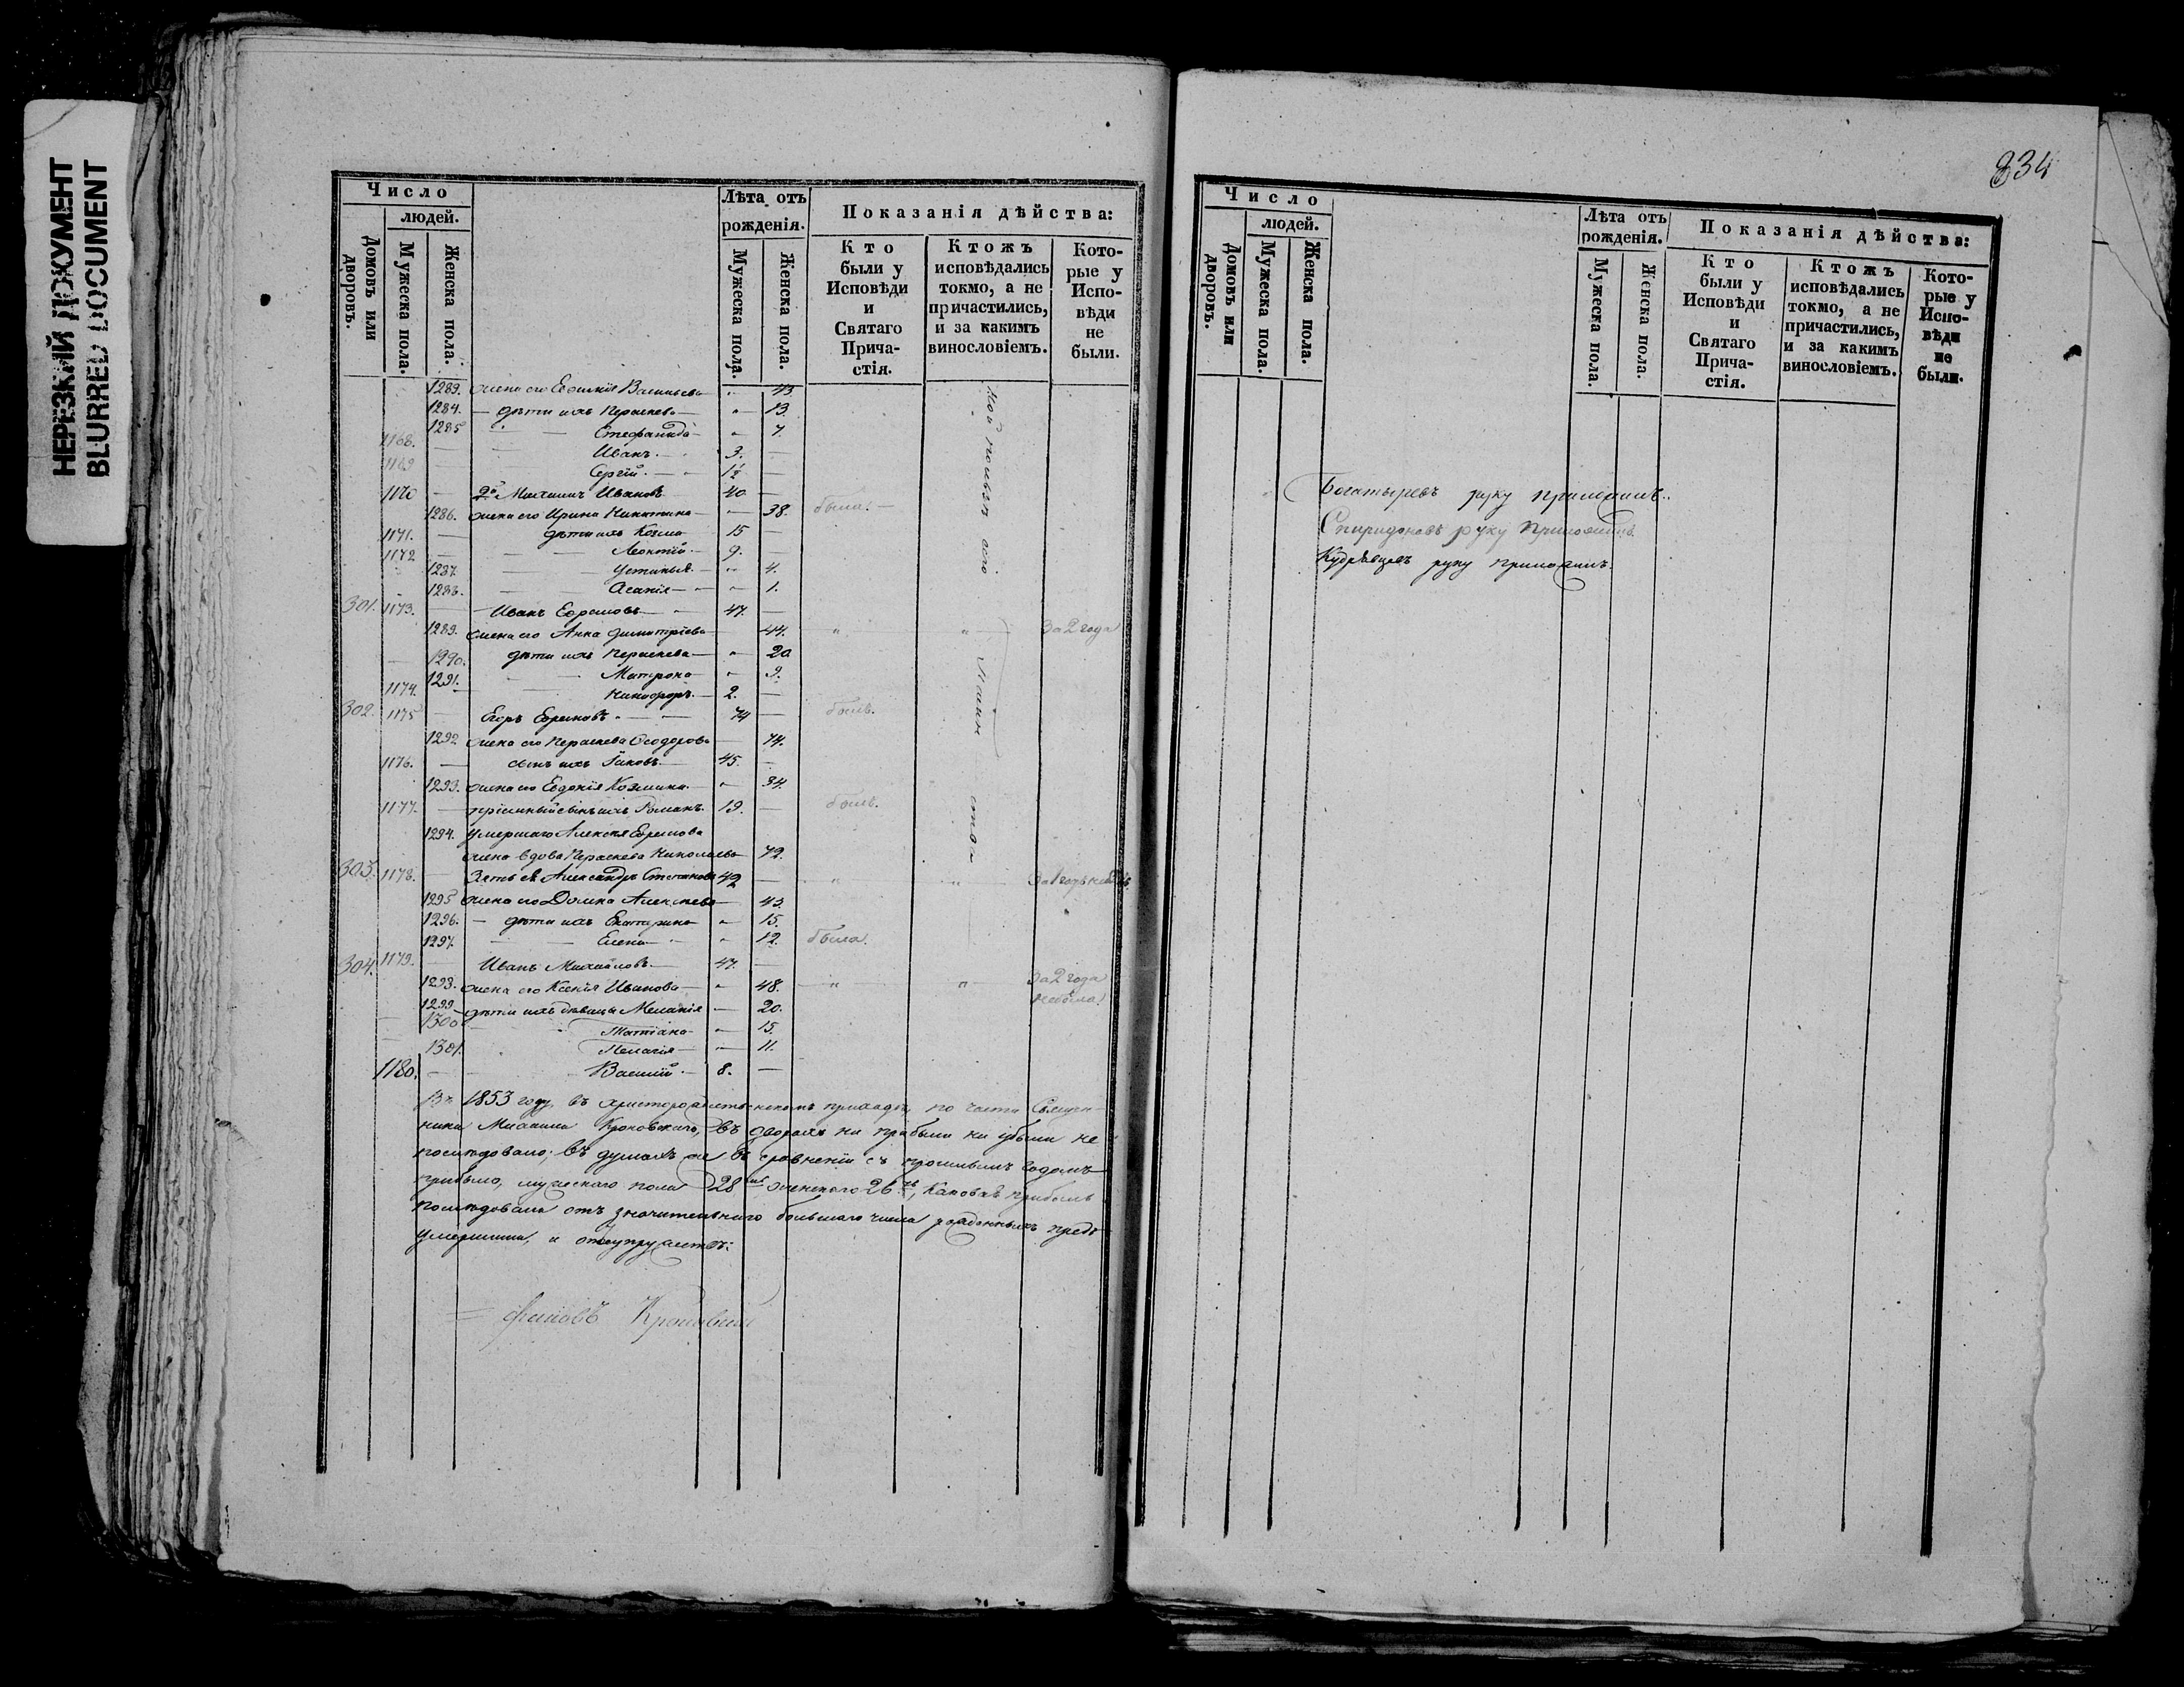 НЕРЕЗКИЙ ДОКУМЕНТ
BLURRED DOCUMENT
Число
людей.
Домовъ или дворовъ.
Мужеска пола.
Женска пола.
Лѣта отъ рожденія.
Мужеска пола.
Женска пола.
Показанія дѣйства:
Кто были у Исповѣди и Святаго Прича-стія.
Ктожъ исповѣдались токмо, а не причастились, и за какимъ винословіемъ.
Кото-рые у Испо-вѣди не были.
1283. жена его Васильева " 43.
1284. — дѣти ихъ Параскева — " 13.
1285 — Стефанида — " 7.
1168. — Иванъ. 3. —
1169 — Сергій. — 1½ —
1170 — 2й Михаилъ Ивановъ 40 —
1286. жена его Ирина Никитина — 38. была. —
1171. — дѣти ихъ Козма 15 —
1172 — Леонтій — 9. —
1287. — Устинья. — " 4.
1288. — Агапія — " 1.
301. 1173. — Иванъ Ефремовъ — 47. —
1289. жена его Анна Димитріева 44. " " За 2 года
1290. дѣти ихъ Параскева — " 20
1291. — Матрона — " 9.
1174. — Никифоръ. — 2. —
302. 1175 — Егоръ Ефремовъ. — 74 — былъ.
1292 жена его Параскева Ѳеодорова 74.
1176. — сынъ ихъ Іаковъ. — 45. —
1293. жена его Евдокія Козмина. — " 34.
1177. — пріемный сынъ ихъ Романъ. 19. — былъ.
1294. умершаго Алексѣя Ефремова
жена вдова Параскева Николаева 72.
303. 1178. — Зять ея Александръ Степановъ 42 — " " За 1 годъ
1295 жена его Домна Алексѣева — 43.
1296. — дѣти ихъ Екатерина — " 15.
1297. — Елена — " 12. была.
304. 1179. — Иванъ Михайловъ. — 47. —
1298. жена его Ксенія Иванова — " 48. " " За 2 года
не была.
1299 дѣти ихъ дѣвица Меланія — 20.
1300 — Татіана — " 15.
1301. — Пелагія — " 11.
1180. — Василій. — 8. —
Въ 1853 году, въ Христорождественскомъ приходѣ, по части Священ-
ника Михаила Кроковскаго, въ дворахъ ни прибыли ни убыли не
послѣдовало; въ душахъ же въ сравненіи съ прошлымъ годомъ
прибыло, мужескаго пола 28 женскаго 26, каковая прибыль
послѣдовала отъ значительнаго большаго числа рожденныхъ предъ
умершими, и отъ супружествъ.
334
Число
людей.
Домовъ или дворовъ.
Мужеска пола.
Женска пола.
Лѣта отъ рожденія.
Мужеска пола.
Женска пола.
Показанія дѣйства:
Кто были у Исповѣди и Святаго Прича-стія.
Ктожъ исповѣдались токмо, а не причастились, и за какимъ винословіемъ.
Кото-рые у Испо-вѣди не были.
Богатыревъ руку приложилъ.
Спиридоновъ руку приложилъ.
Кудрявцевъ руку приложилъ.